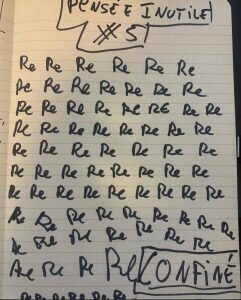 PENSÉE INUTILE
#5
Re Re Re Re Re Re
Re Re Re Re Re Re Re
Re Re Re Re Re Re Re Re
Re Re Re Re Re Re Re Re
Re Re Re Re Re Re Re
Re Re Re Re Re Re Re Re
Re Re Re Re Re Re Re Re
Re Re Re Re Re Re Re Re Re
Re Re Re Re Re Re Re
Re Re Re Re CONFINÉ
Re Re Re Re Re Re